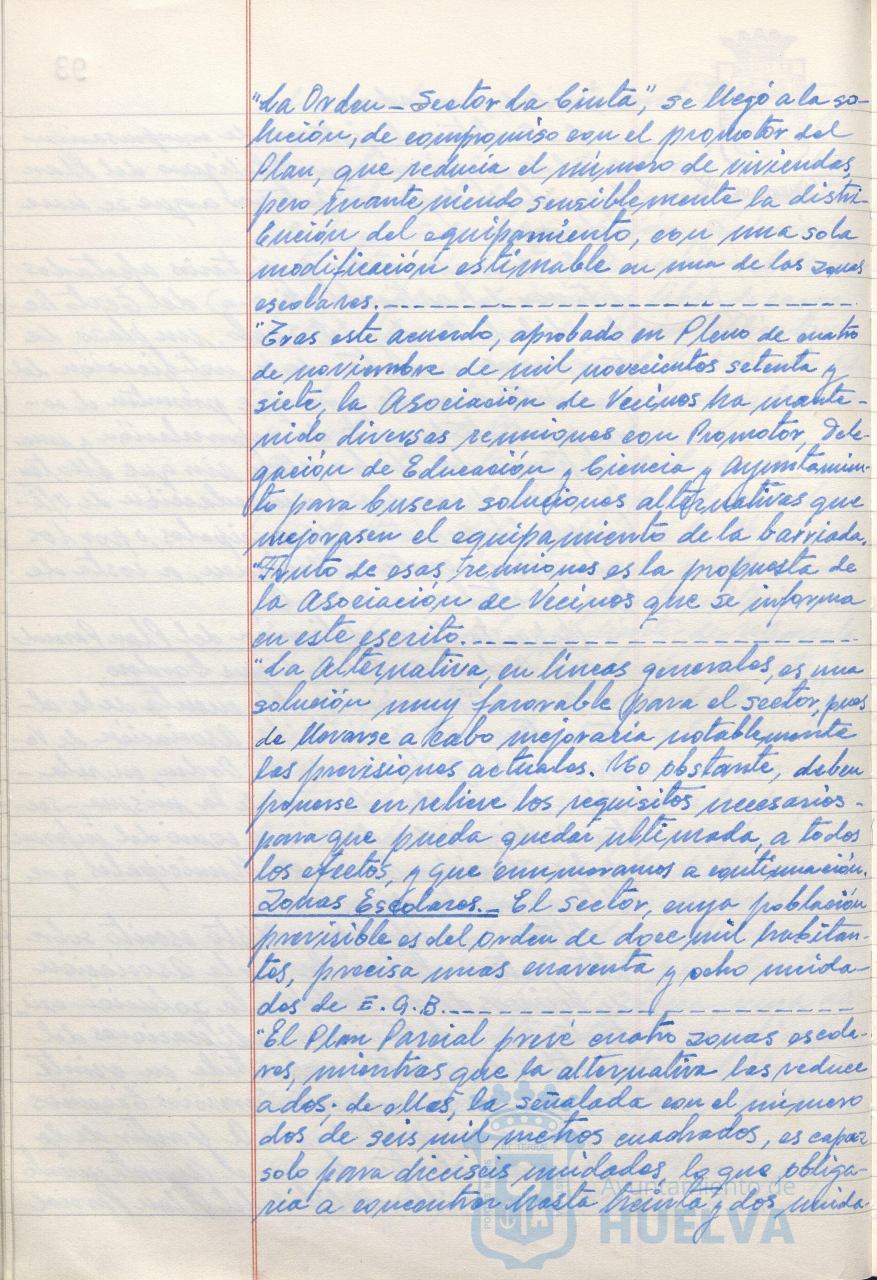 "La Orden - Sector La Cinta", se llegó a la so-
lución, de compromiso con el promotor del
Plan, que reducía el número de viviendas,
pero manteniendo sensiblemente la distri-
bución del equipamiento, con una sola
modificación estimable en una de las zonas
escolares.
"Tras este acuerdo, aprobado en Pleno de cuatro
de noviembre de mil novecientos setenta y
siete, la Asociación de Vecinos ha mante-
nido diversas reuniones con Promotor, Dele-
gación de Educación y Ciencia y Ayuntamien-
to para buscar soluciones alternativas que
mejorasen el equipamiento de la barriada.
"Fruto de esas reuniones es la propuesta de
la Asociación de Vecinos que se informa
en este escrito.
"La Alternativa, en líneas generales, es una
solución muy favorable para el sector, pues
de llevarse a cabo mejoraría notablemente
las previsiones actuales. No obstante, deben
ponerse en relieve los requisitos necesarios
para que pueda quedar ultimada, a todos
los efectos, y que enumeramos a continuación.
Zonas Escolares.- El sector, cuya población
previsible es del orden de doce mil habitan-
tes, precisa unas cuarenta y ocho unida-
des de E.G.B.
"El Plan Parcial prevé cuatro zonas escola-
res, mientras que la alternativa las reduce
a dos; de ellas, la señalada con el número
dos de seis mil metros cuadrados, es capaz
solo para dieciseis unidades, lo que obliga-
ría a concentrar hasta treinta y dos unida-
Ayuntamiento de
HUELVA
93